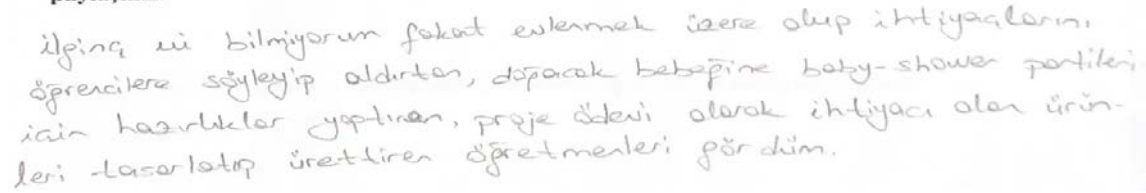 ilginç mi bilmiyorum fakat evlenmek üzere olup ihtiyaçlarını
öğrencilere söyleyip aldırtan, doğacak bebeğine baby-shower partileri
için hazırlıklar yaptıran, proje ödevi olarak ihtiyacı olan ürün-
leri tasarlatıp ürettiren öğretmenleri gördüm.